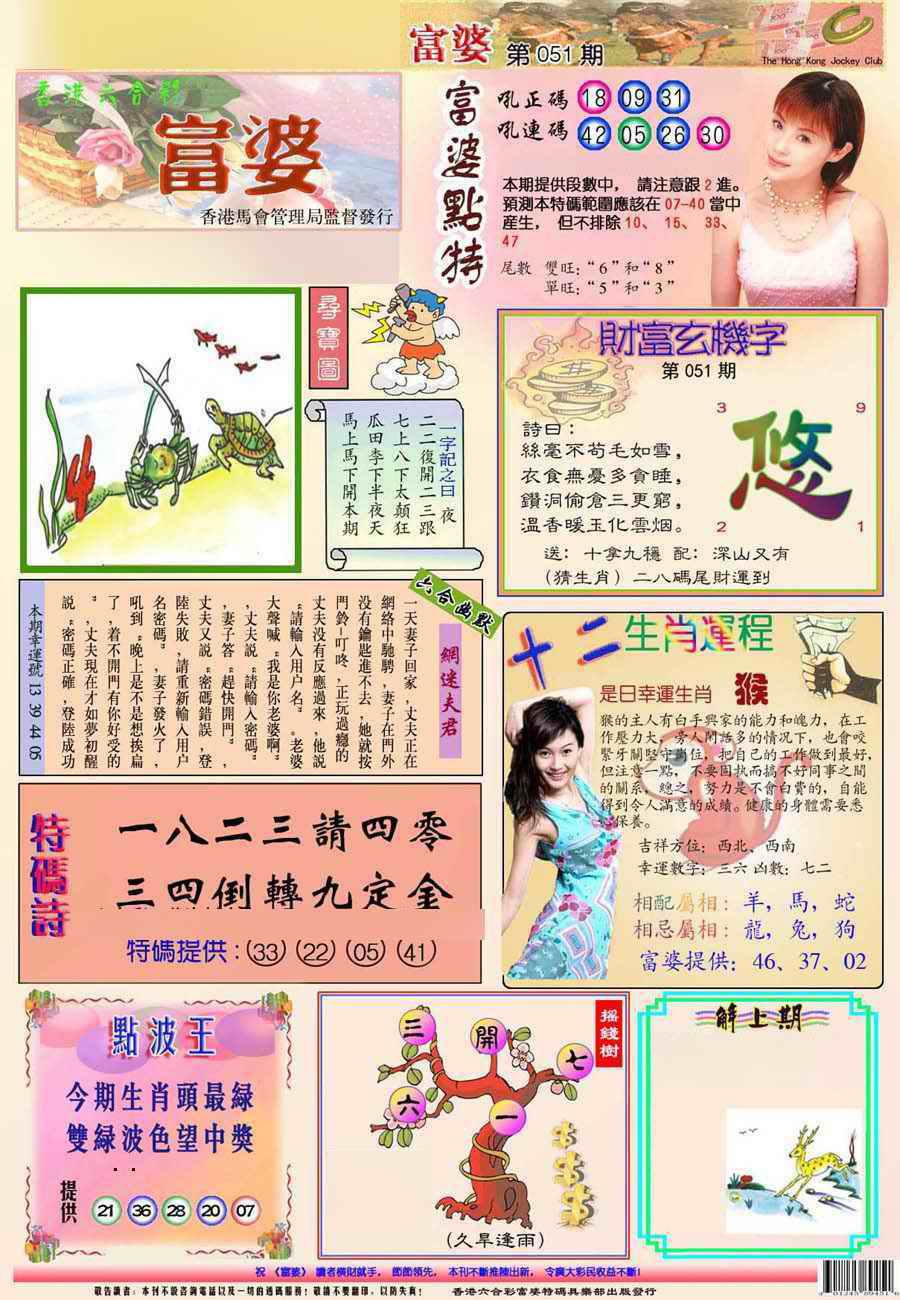 富婆 第051期
The Hong Kong Jockey Club
香港六合彩
富婆
香港馬會管理局監督發行
富婆點特
吼正碼 18 09 31
吼連碼 42 05 26 30
本期提供段數中， 請注意跟2進。
預測本特碼範圍應該在07-40當中
産生， 但不排除10、 15、 33、
47
尾數 雙旺：“6”和“8”
單旺：“5”和“3”
尋寶圖
一字記之曰 夜
二二復開二三跟
七上八下太顛狂
瓜田李下半夜天
馬上馬下開本期
財富玄機字
第051期
詩曰：
絲毫不茍毛如雪，
衣食無憂多貪睡，
鑽洞偷倉三更窮，
溫香暖玉化雲烟。
3 9
悠
2 1
送：十拿九穩 配：深山又有
（猜生肖）二八碼尾財運到
六合幽默
網迷夫君
一天妻子回家，丈夫正在
網絡中馳騁，妻子在門外
没有鑰匙進不去，她就按
門鈴-叮咚，正玩過癮的
丈夫没有反應過來，他説
“請輸入用户名。”老婆
大聲喊“我是你老婆啊”
，丈夫説“請輸入密碼”
，妻子答“趕快開門”，
丈夫又説“密碼錯誤，登
陸失敗，請重新輸入用户
名密碼。”，妻子發火了，
吼到“晚上是不是想挨扁
了，着不開門有你好受的
”，丈夫現在才如夢初醒
説，“密碼正確，登陸成功
本期幸運號 13 39 44 05
十二生肖運程
是日幸運生肖 猴
猴的主人有白手興家的能力和魄力，在工
作壓力大，旁人閑話多的情况下，也會咬
緊牙關堅守崗位，把自己的工作做到最好，
但注意一點，不要固執而搞不好同事之間
的關系，總之，努力是不會白費的，自能
得到令人滿意的成績。健康的身體需要悉
保養。
吉祥方位：西北、西南
幸運數字：三六 凶數：七二
相配屬相：羊，馬，蛇
相忌屬相：龍，兔，狗
富婆提供：46、37、02
特碼詩
一八二三請四零
三四倒轉九定金
特碼提供：33 22 05 41
點波王
今期生肖頭最緑
雙緑波色望中獎
提供 21 36 28 20 07
摇錢樹
三 開 七
六 一
（久旱逢雨）
解上期
祝《富婆》讀者橫財就手， 節節領先， 本刊不斷推陳出新， 令廣大彩民收益不斷！
敬告讀者：本刊不設咨詢電話以及一切的透碼服務！敬請不要翻印，以防失真！ 香港六合彩富婆特碼俱樂部出版發行